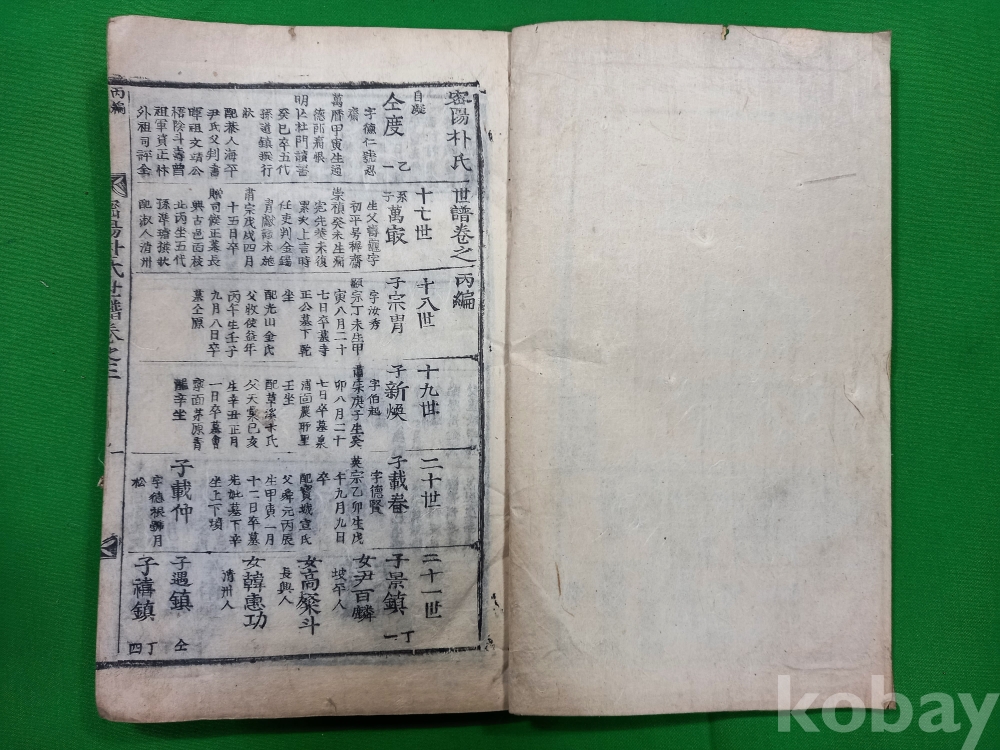 密陽朴氏世譜卷之 丙編
自凝
仝度 乙一
字德仁號忍
齋
萬曆甲寅生通
德郎崇禎
明亡杜門讀書
癸巳卒五代
孫道鎮撰行
狀
配恭人海平
尹氏父判書
暉祖文靖公
梧陰斗壽曾
祖軍資正忭
外祖司評金
十七世
系子萬㝡
生父齊龍字
初平号樨齋
崇禎癸未生
任吏判金錫
胄獻議未施
肅宗戊戌四月
十五日卒
贈司僕正墓長
興古邑面枝
北丙坐五代
孫準璿撰狀
配淑人清州
十八世
子宗胄
字汝秀
顯宗丁未生甲
寅八月二十
七日卒墓寺
正公墓下乾
坐
配光山金氏
父牧使益年
丙午生壬子
九月八日卒
墓仝原
十九世
子新煥
字伯起
肅宗庚子生癸
卯八月二十
七日卒墓泉
浦面農所里
壬坐
配草溪卞氏
父天㝡己亥
生辛丑正月
一日卒墓會
寧面茅原青
龍辛坐
二十世
子載春
字德賢
英宗乙卯生戊
午九月九日
卒
配寶城宣氏
父舜元丙辰
生甲寅一月
十二日卒墓
先妣墓下辛
坐上下墳
子載仲
字德振號月
松
二十一世
子景鎮 丁一
女尹百麟
坡平人
女高粲斗
長興人
女韓惠功
清州人
子遇鎮 仝
子禧鎮 丁四
丙編
密陽朴氏世譜卷之三
一
kobay